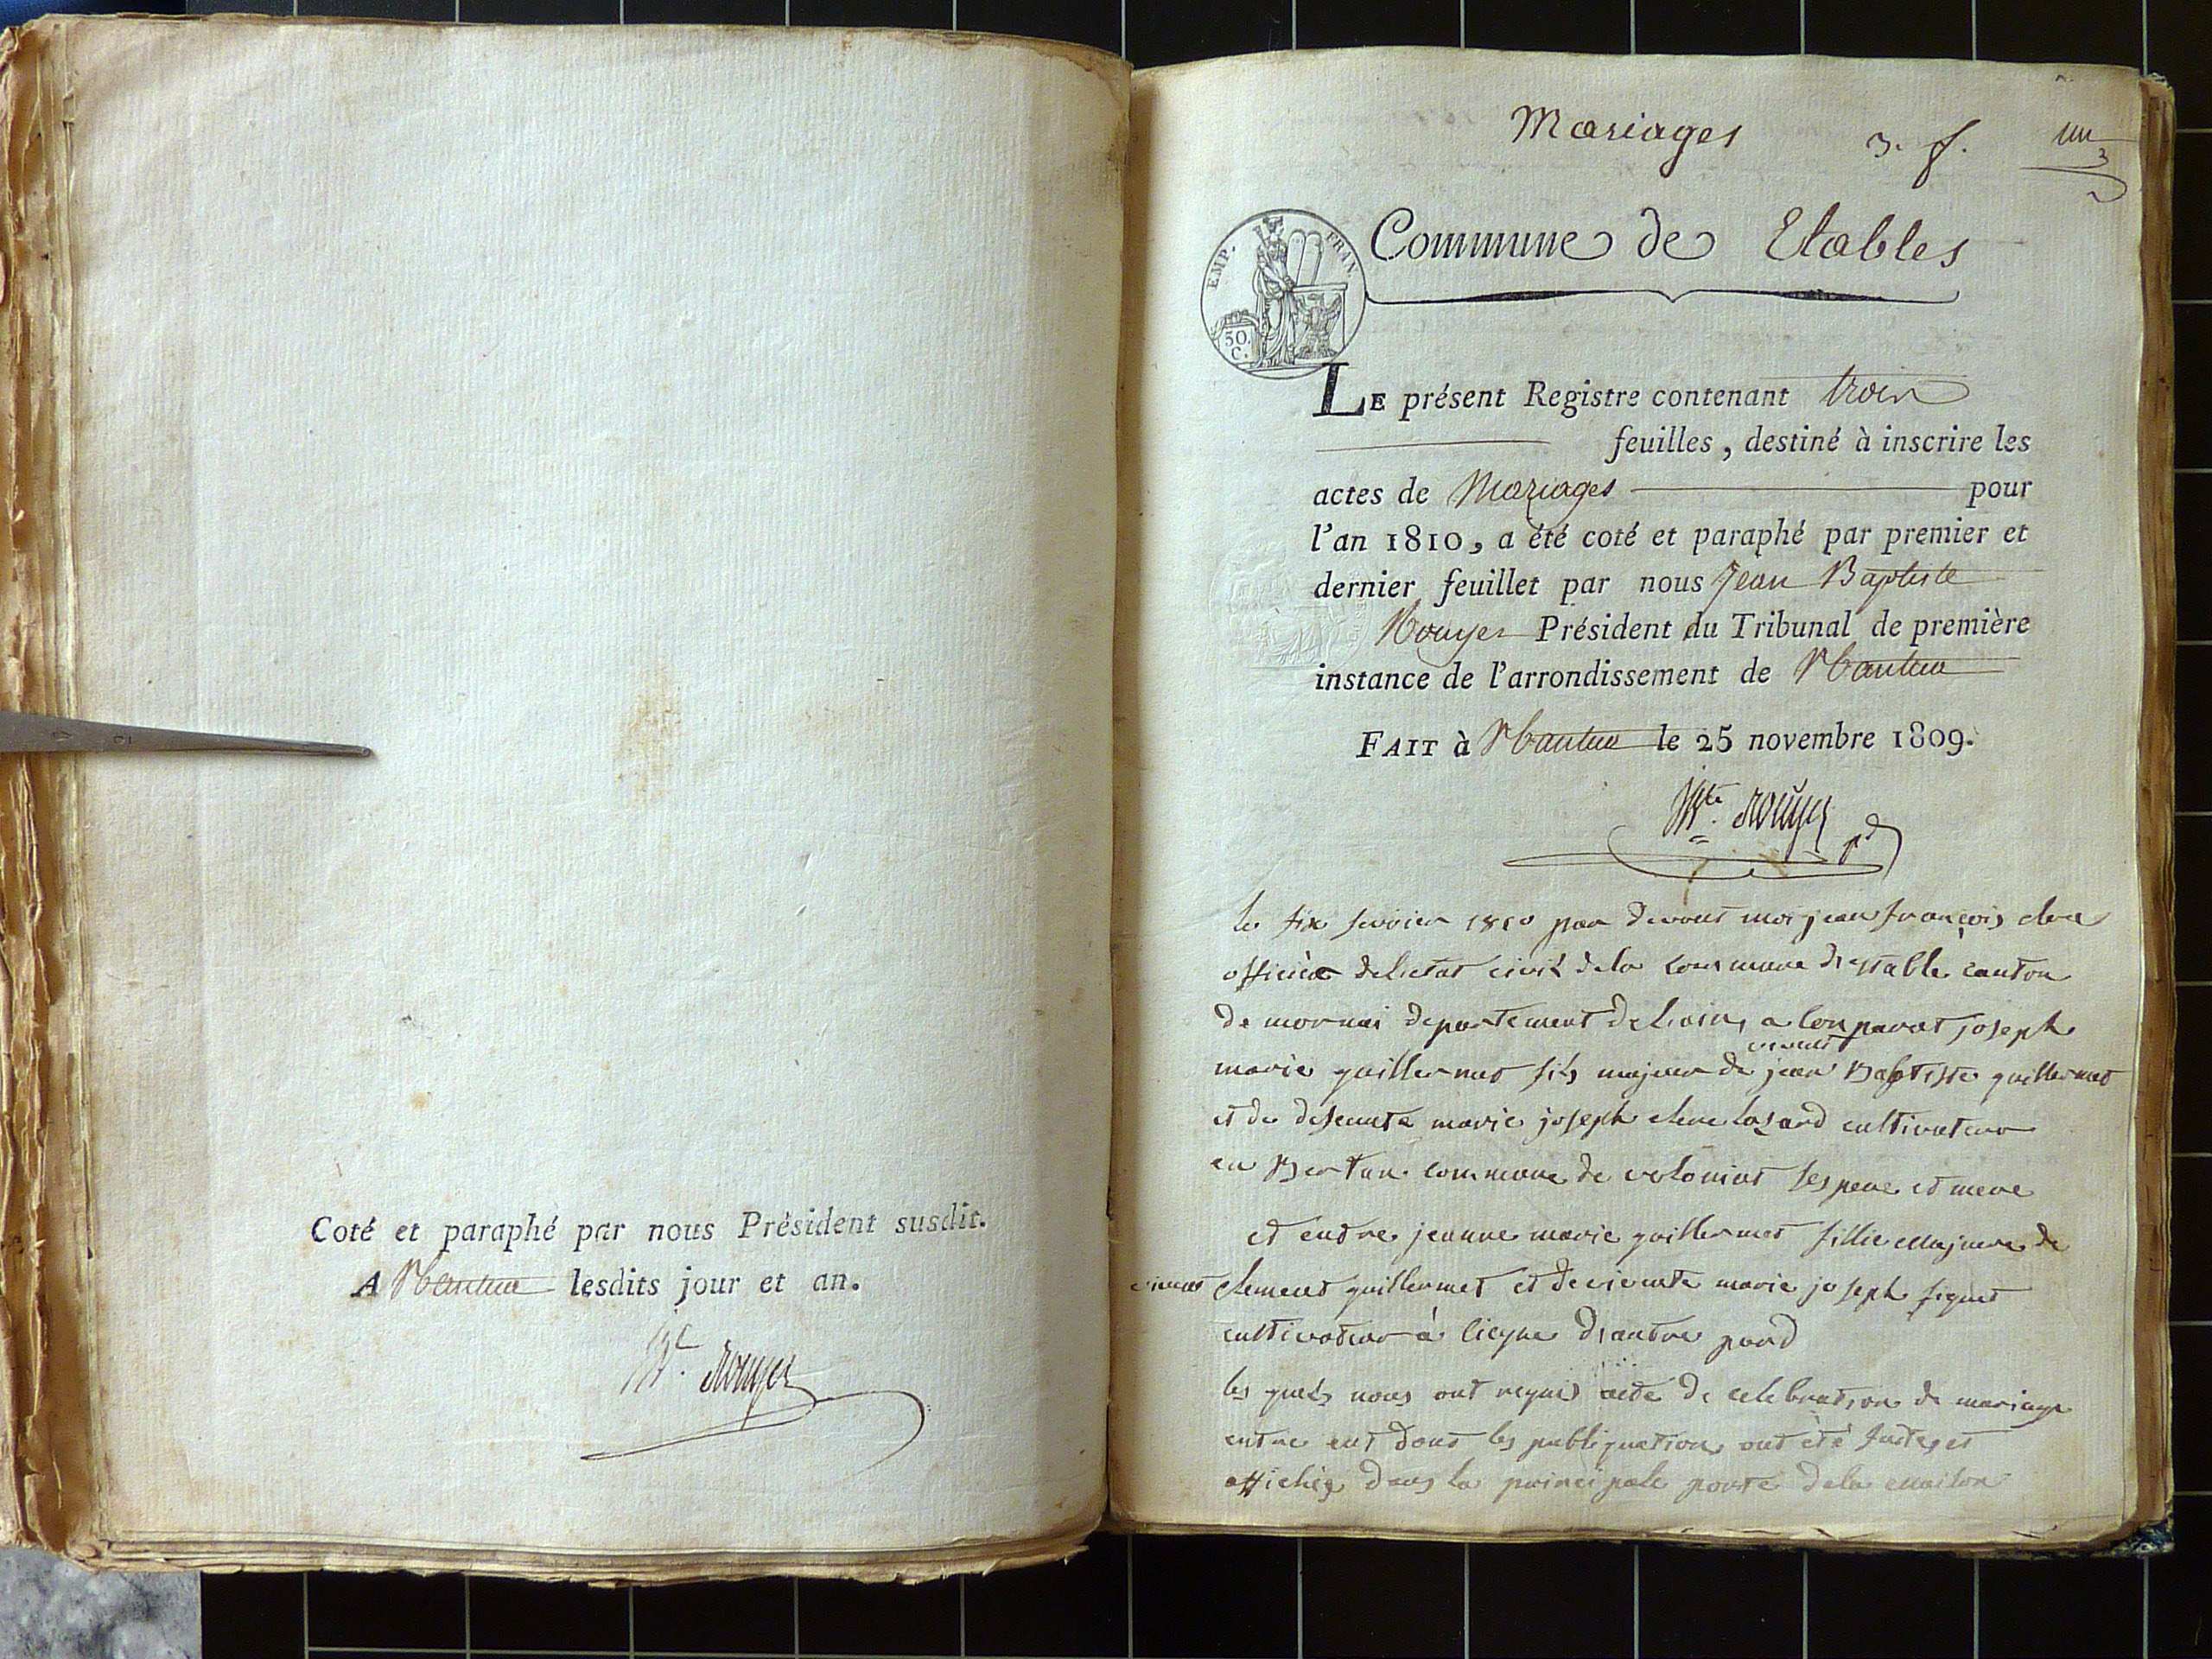 Coté et paraphé par nous Président susdit.
A Nantua lesdits jour et an.
Bte. Rouyer
Mariages 3. f. un
3
Commune de Etables
EMP. FRAN.
50.
C.
LE présent Registre contenant trois
feuilles, destiné à inscrire les
actes de Mariages pour
l'an 1810, a été coté et paraphé par premier et
dernier feuillet par nous Jean Baptiste
Rouyer Président du Tribunal de première
instance de l'arrondissement de Nantua
FAIT à Nantua le 25 novembre 1809.
Bte. Rouyer pd
le six fevrier 1810 par devant moi jean françois
officier deletat civil dela commune destable canton
de mornai departement de lain, a comparut joseph
marie guillermet fils majeur de vivant jean Baptiste guillermet
et de defeunte marie joseph cultivateur
en Bertian commune de voloniat ses pere et mere
et entre jeanne marie guillermet fillie majeure de
vivant clement guillermet et de vivente marie joseph
cultivateur à d'autre pard
les quels nous ont requis acte de celebration de mariage
entre eut dont les publiquations ont été faites et
affichés dans la principale porte dela maison